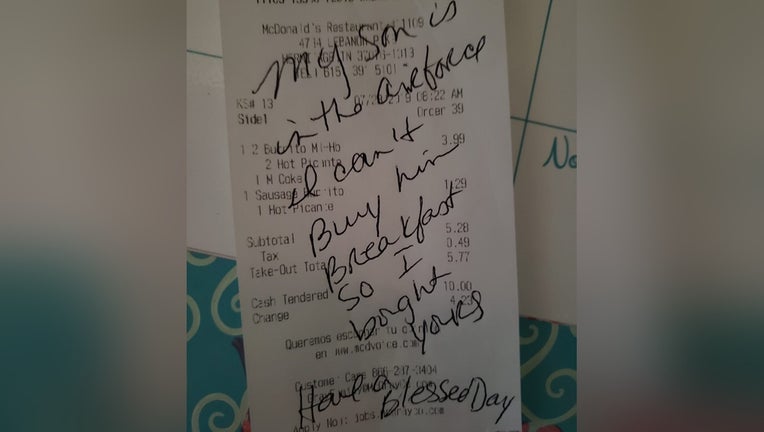 McDonald's Restaurant 1109
4714 LEBANON
My son is
TEL 615 39 5101
in the aireforce
KS# 13
08:22 AM
Side1
Order 39
I can't
1 2 Burrito Ml-Ho 3.99
2 Hot Picante
1 M Coke
Buy him
1 Sausage Burrito 1.29
1 Hot Picante
Breakfast
Subtotal 5.28
Tax 0.49
Take-Out Total 5.77
So I
Cash Tendered 10.00
Change 4.23
bought
yours
Queremos escuchar tu
en www.mcdvoice.com
Customer Care
Have a
Blessed Day
Apply Now: jobs
No